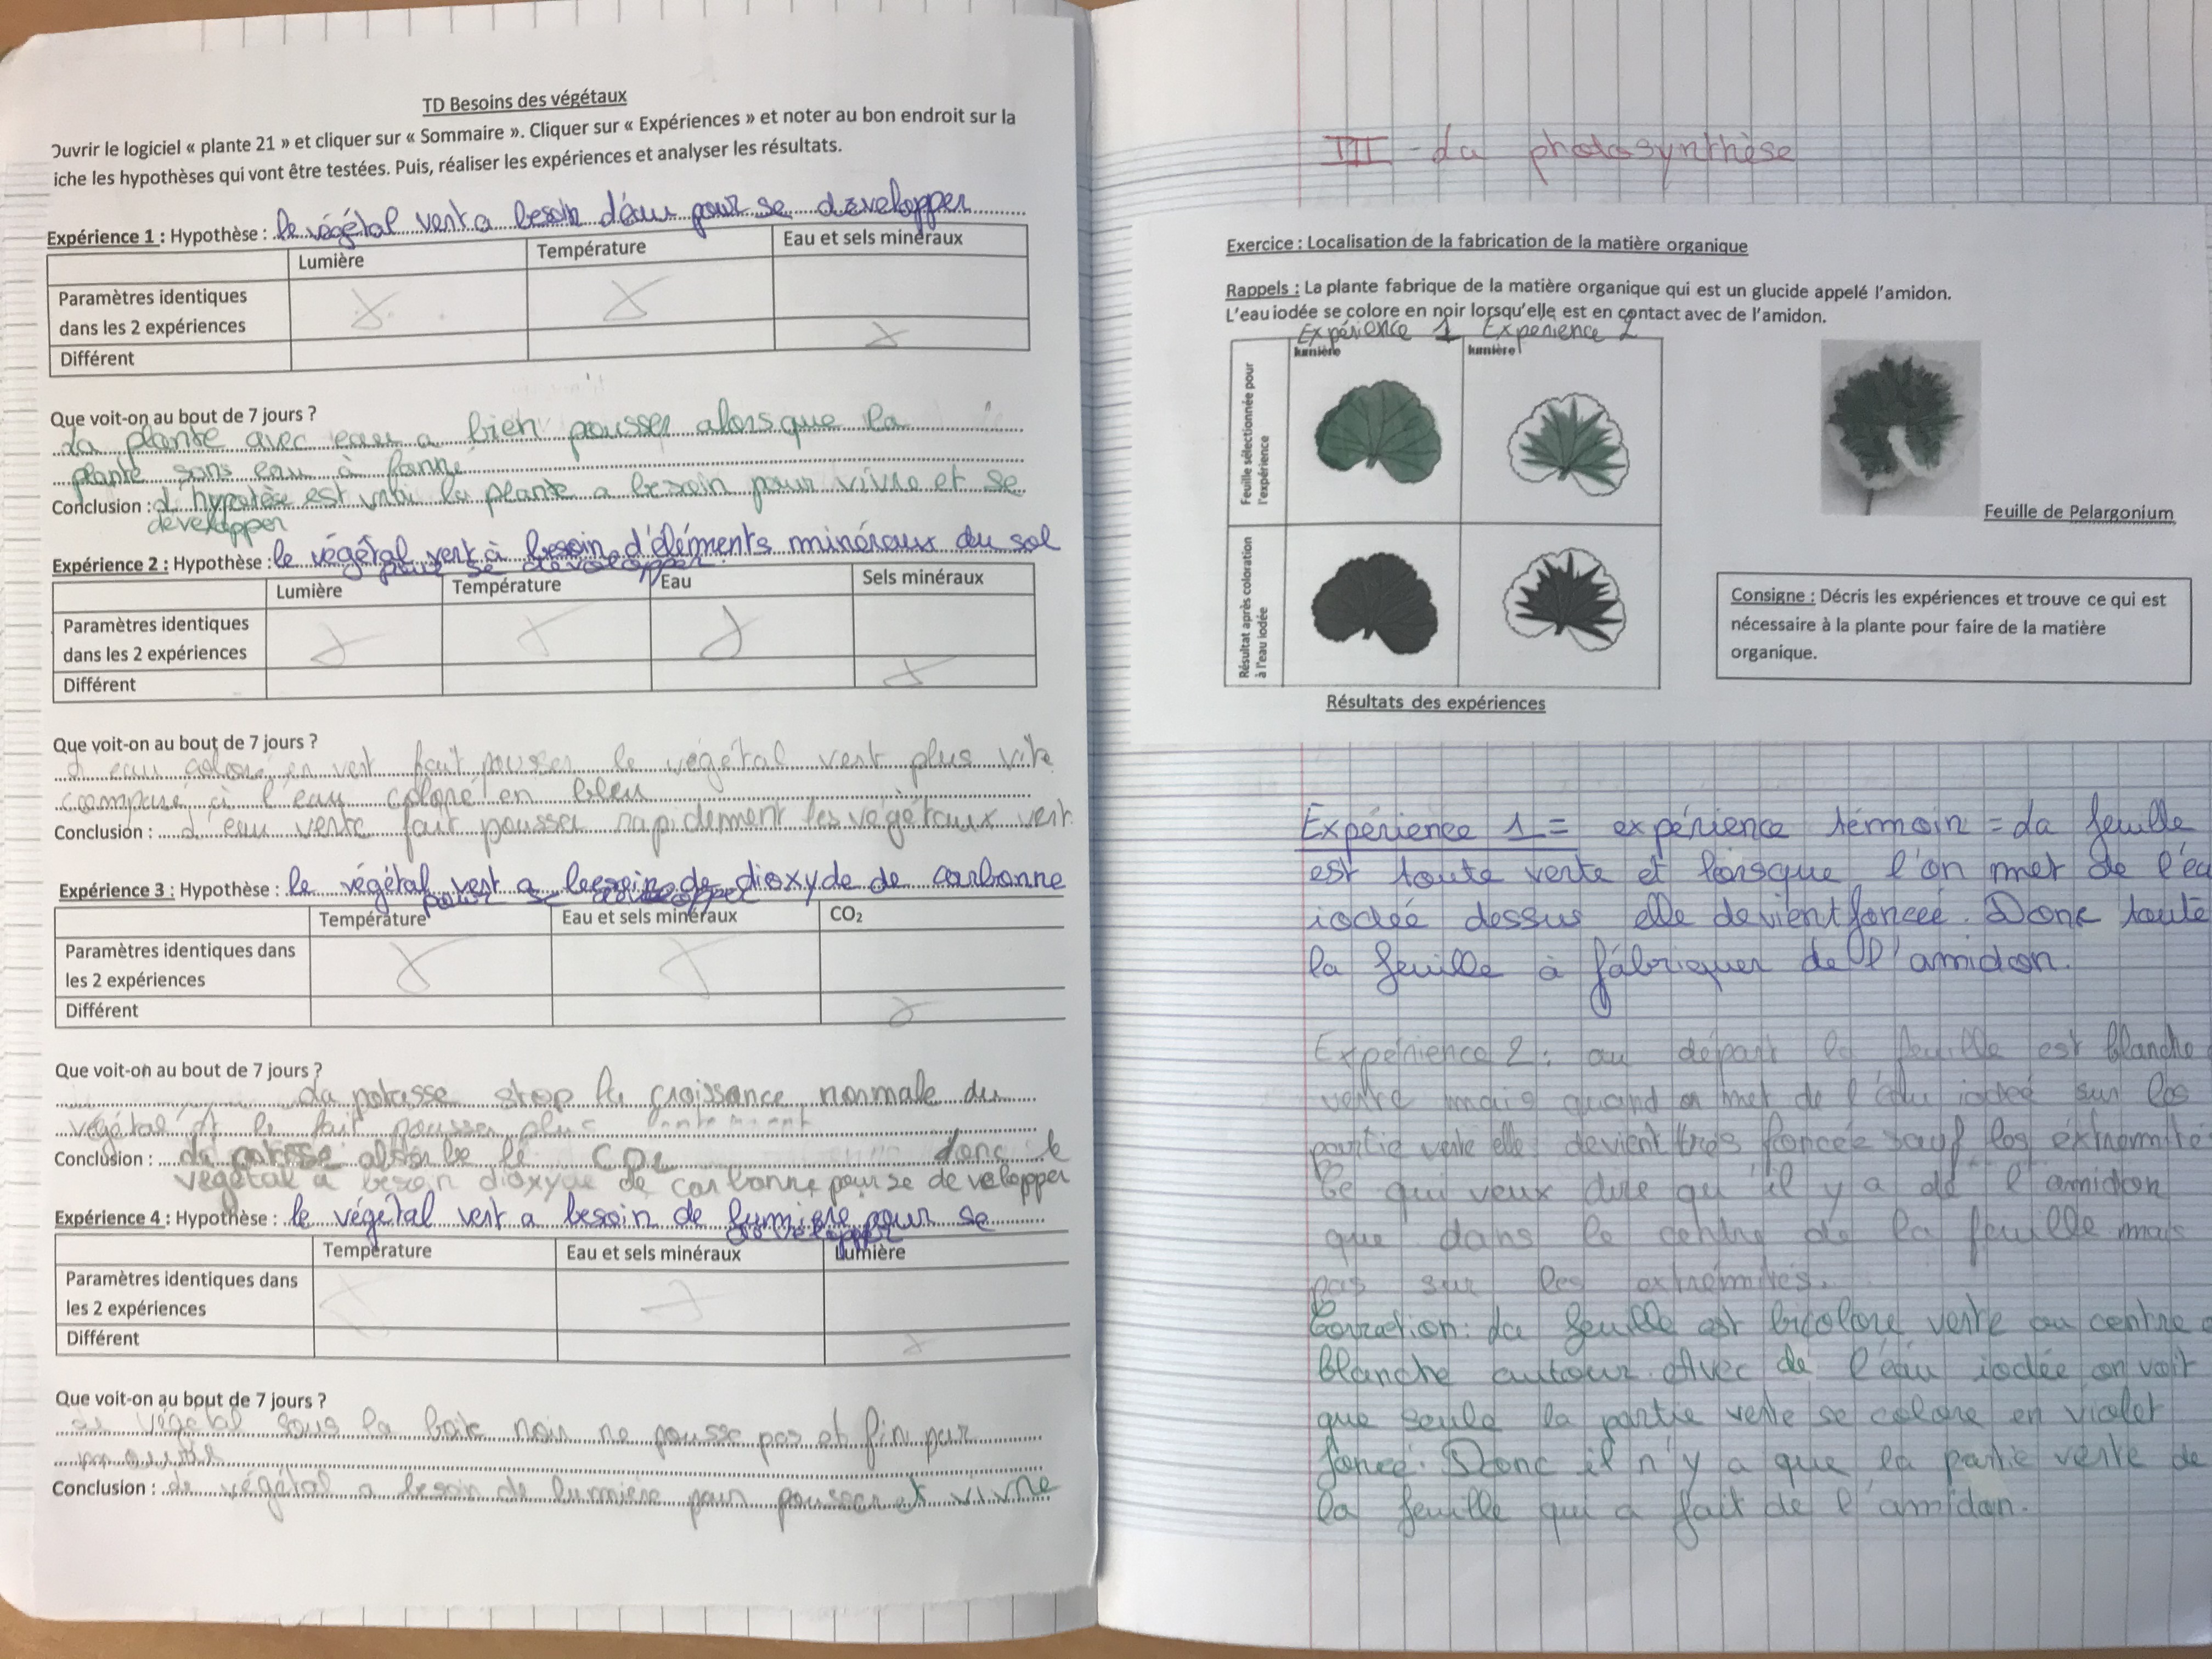 TD Besoins des végétaux
Ouvrir le logiciel « plante 21 » et cliquer sur « Sommaire ». Cliquer sur « Expériences » et noter au bon endroit sur la
iche les hypothèses qui vont être testées. Puis, réaliser les expériences et analyser les résultats.
Expérience 1 : Hypothèse : le végétal vert a besoin d'eau pour se développer
Lumière Température Eau et sels minéraux
Paramètres identiques
dans les 2 expériences
Différent
Que voit-on au bout de 7 jours ?
La plante avec eau a bien pousser alors que la
plante sans eau à fanné
Conclusion : L'hypotèse est vrai la plante a besoin pour vivre et se
développer
Expérience 2 : Hypothèse : le végétal vert à besoin d'éléments minéraux du sol
pour se développer
Lumière Température Eau Sels minéraux
Paramètres identiques
dans les 2 expériences
Différent
Que voit-on au bout de 7 jours ?
L'eau coloré en vert fait pousser le végétal vert plus vite
comparé à l'eau coloré en bleu
Conclusion : L'eau verte fait pousser rapidement les végétaux vert
Expérience 3 : Hypothèse : le végétal vert a besoin de dioxyde de carbonne
pour se développer
Température Eau et sels minéraux CO₂
Paramètres identiques dans
les 2 expériences
Différent
Que voit-on au bout de 7 jours ?
La potasse stop la croissance normale du
végétal et le fait pousser plus
Conclusion : La potasse absorbe le CO2 donc le
végétal a besoin dioxyde de carbonne pour se developper
Expérience 4 : Hypothèse : le végétal vert a besoin de lumière pour se
développer
Température Eau et sels minéraux Lumière
Paramètres identiques dans
les 2 expériences
Différent
Que voit-on au bout de 7 jours ?
Le végétal sous la boite noir ne pousse pas et fini par
Conclusion : Le végétal a besoin de lumière pour pousser et vivre
III - La photosynthèse
Exercice : Localisation de la fabrication de la matière organique
Rappels : La plante fabrique de la matière organique qui est un glucide appelé l'amidon.
L'eau iodée se colore en noir lorsqu'elle est en contact avec de l'amidon.
Expérience 1 Expérience 2
lumière lumière
Feuille sélectionnée pour
l'expérience
Résultat après coloration
à l'eau iodée
Résultats des expériences
Feuille de Pelargonium
Consigne : Décris les expériences et trouve ce qui est
nécessaire à la plante pour faire de la matière
organique.
Expérience 1 = expérience témoin = La feuille
est toute verte et lorsque l'on met de l'ea
iodée dessus elle devient foncée. Donc toute
la feuille à fabriquer de l'amidon.
Expérience 2 : au départ la feuille est blanche
verte mais quand on met de l'eau iodée sur les
partie verte elle devient très foncée sauf les éxtrémité
Ce qui veux dire qu'il y a de l'amidon
que dans le centre de la feuille mais
pas sur les extrémités.
Correction : La feuille est bicolore verte au centre
blanche autour. Avec de l'eau iodée on voit
que seule la partie verte se colore en violet
foncé. Donc il n'y a que la partie verte de
la feuille qui a fait de l'amidon.